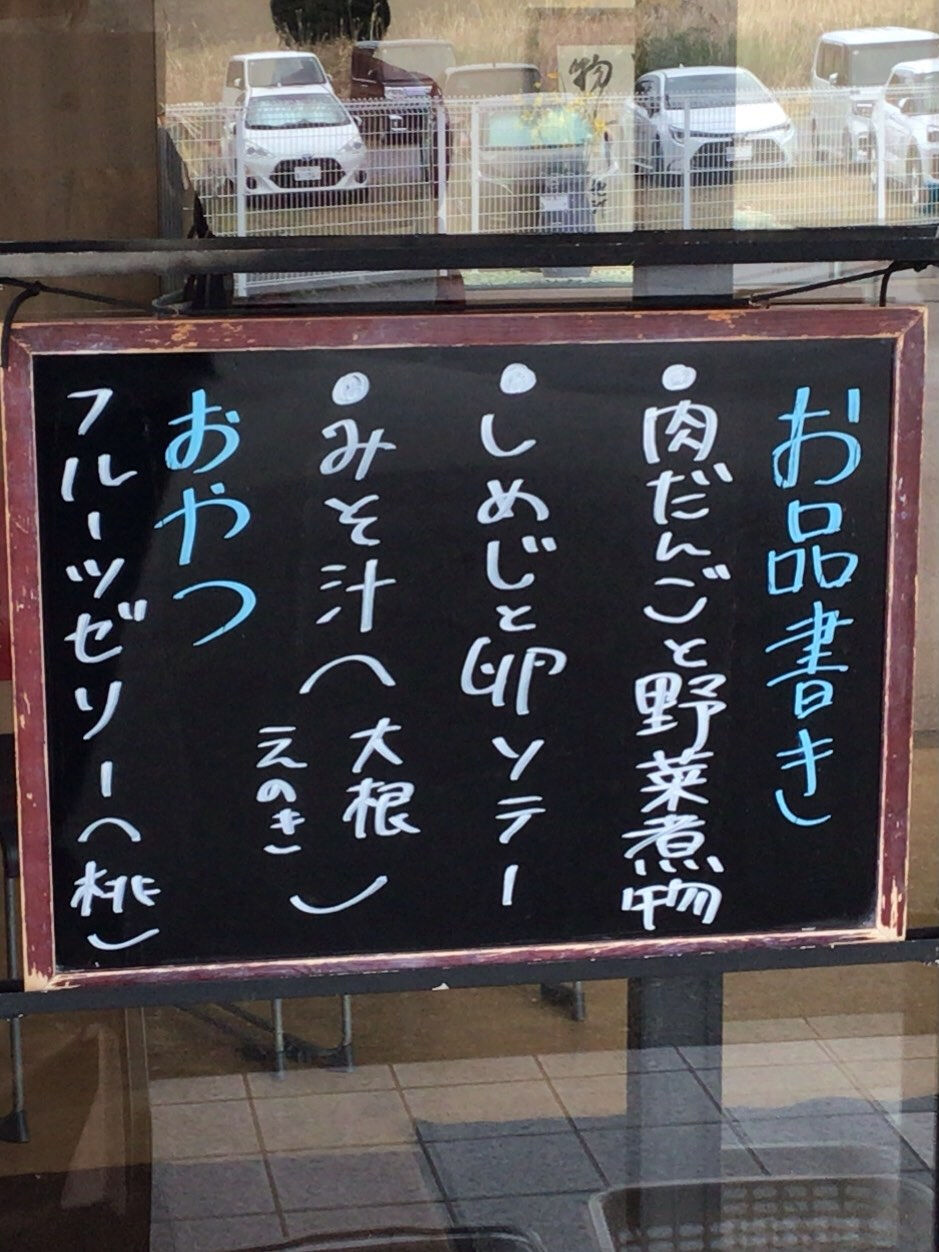 お品書き
●肉だんごと野菜煮物
●しめじと卵ソテー
●みそ汁(大根
えのき)
おやつ
フルーツゼリー(桃)
物